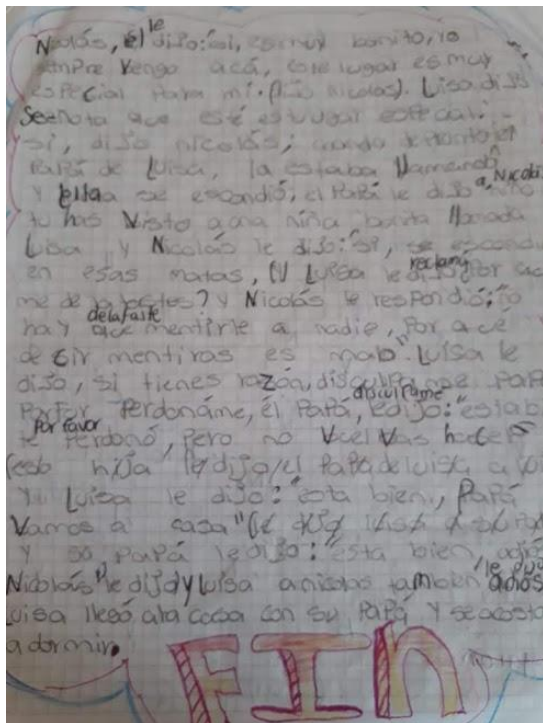 Nicolás, él le dijo: "si, es muy bonito, yo
siempre vengo acá, este lugar es muy
especial para mi. (dijo Nicolas). Lisa dijo
Senota que esté es tu lugar especial.
si, dijo nicolás; cuando de pronto el
Papá de Luisa, la estaba llamando
Y ella se escondió; el Papá le dijo a Nicolás niño
tu has visto a una niña bonita llamada
Lisa y Nicolás le dijo: "si, se escondió
en esas matas, (y Luisa le reclamó Por qué
me delataste? y Nicolás le respondió: no
hay que mentirle a nadie, Por qué
decir mentiras es malo". Luisa le
dijo, si tienes razón, discúlpame Papá
Por favor Perdoname, él Papá, le dijo: "está b
te Perdonó, Pero no vuelvas hacer
eso hija le dijo el Papá de luisa a
Y Luisa le dijo: "esta bien, Papá
Vamos a casa"
Y su Papá le dijo: "ésta bien, adiós
Nicolás" le dijo y luisa a nicolas también le dijo adiós
Luisa llegó a la casa con su Papá y se acostó
a dormir.
FIN